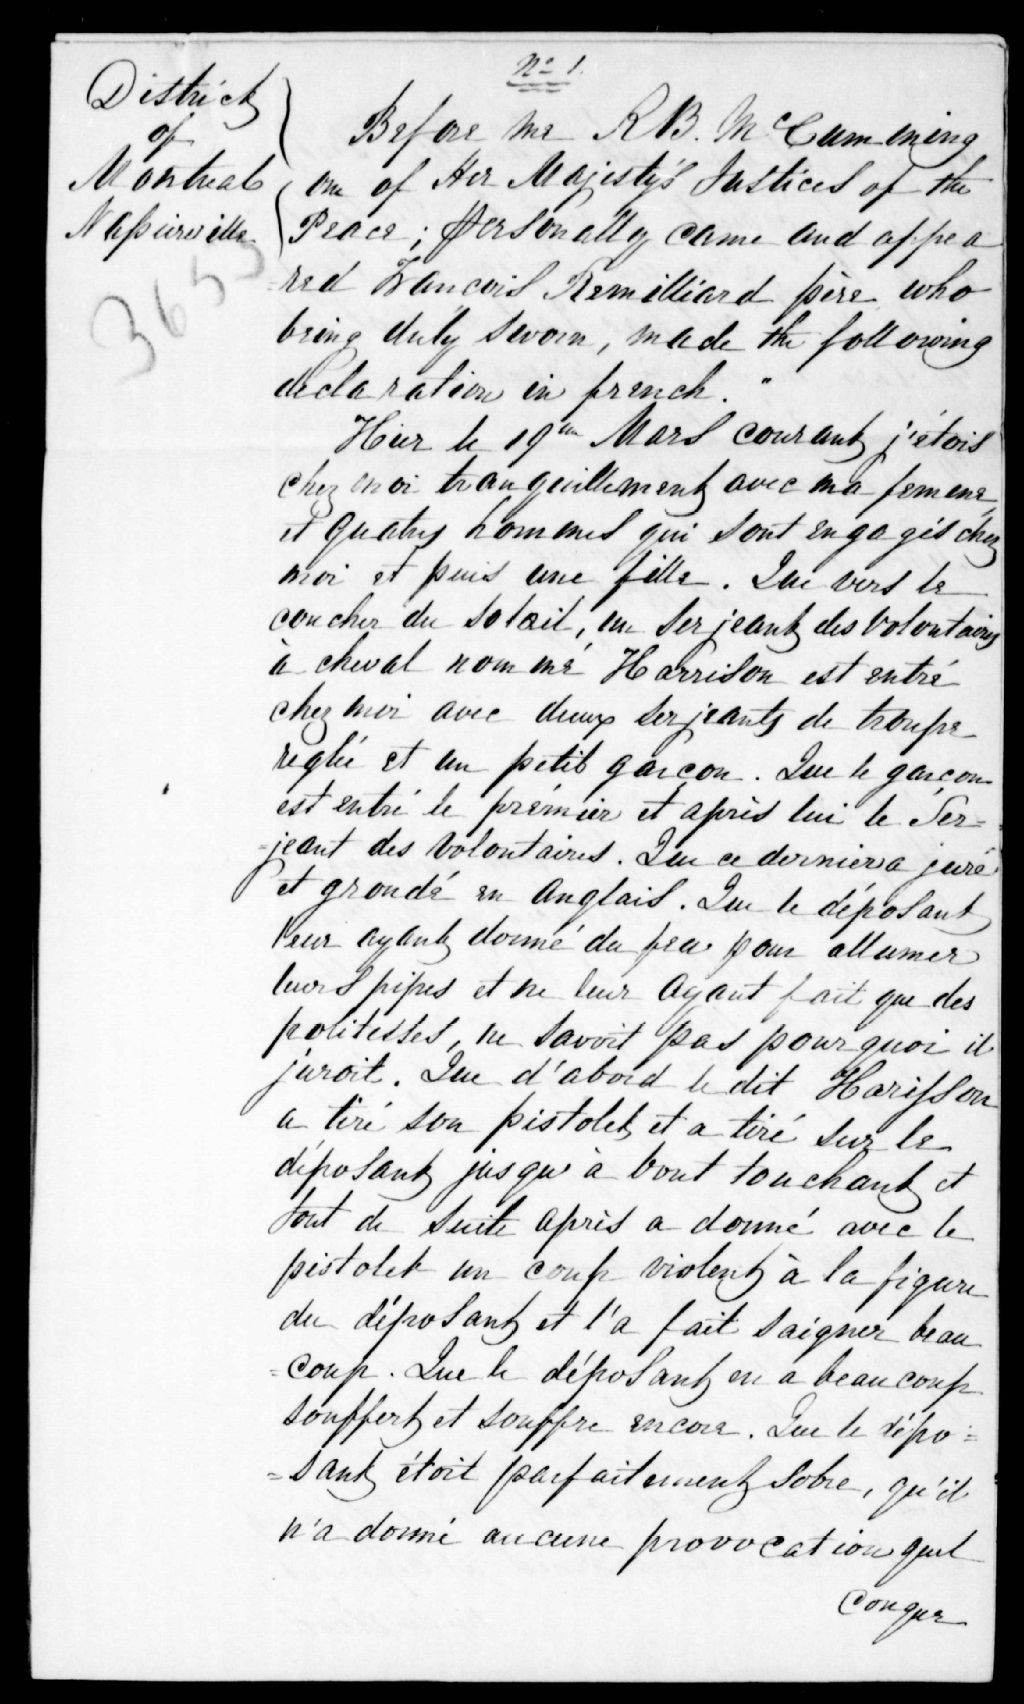 No 1.
District
of
Montreal
Napierville
3653
Before me R B. McCumming
one of Her Majesty's Justices of the
Peace; personally came and appea
=red Francois Remilliard père who
being duly sworn, made the following
declaration in french. "
Hier le 19em Mars courant j'étois
chez moi tranquillement avec ma femme
et quatre hommes qui sont engagés chez
moi et puis une fille. Que vers le
coucher du soleil, un Serjeant des Volontaires
à cheval nommé Harrison est entré
chez moi avec deux serjeants de troupe
reglée et un petit garcon. Que le garçon
est entré le prémier et après lui le Ser=
=jeant des Volontaires. Que ce dernier a juré
et grondé en Anglais. Que le déposant
leur ayant donné du feu pour allumer
leurs pipes et ne leur ayant fait que des
politesses, ne savoit pas pourquoi il
juroit. Que d'abord le dit Harisson
a tiré son pistolet et a tiré sur le
déposant jusqu'à bout touchant et
tout de suite après a donné avec le
pistolet un coup violent à la figure
du déposant et l'a fait saigner beau
=coup. Que le déposant en a beaucoup
souffert et souffre encore. Que le dépo=
=sant étoit parfaitement sobre, qu'il
n'a donné aucune provocation quel
conque